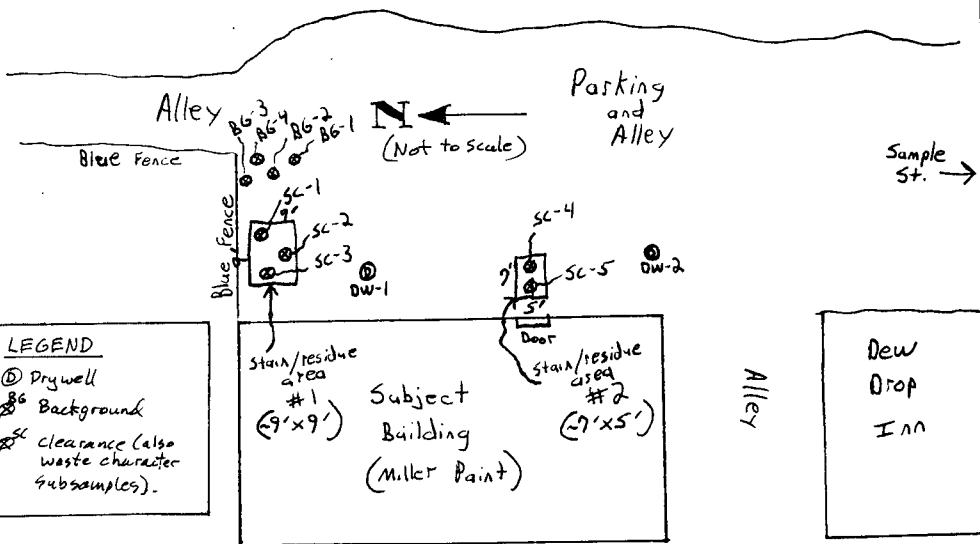 Alley
BG-3
BG-4
BG-2
BG-1
N
(Not to Scale)
Parking
and
Alley
Sample
St.
Blue Fence
Blue Fence
SC-1
9'
SC-2
SC-3
DW-1
SC-4
7'
SC-5
5'
DW-2
Door
LEGEND
D Drywell
BG Background
SC Clearance (also
waste character
subsamples).
Stain/residue
area
#1
(~9'x9')
Subject
Building
(Miller Paint)
Stain/residue
area
#2
(~7'x5')
Alley
Dew
Drop
Inn